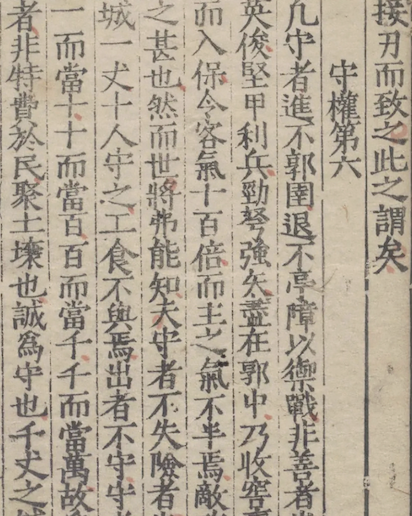 接刃而致之此之謂矣
守權第六
凡守者進不郭圍退不亭障以禦戰非善者
英俊堅甲利兵勁弩強矢盡在郭中乃收窖
而入保令客氣十百倍而主之氣不半焉敵
之甚也然而世將弗能知夫守者不失險者
城一丈十人守之工食不與焉出者不守守
一而當十十而當百百而當千千而當萬故
者非特費於民聚土壤也誠為守也千丈之城